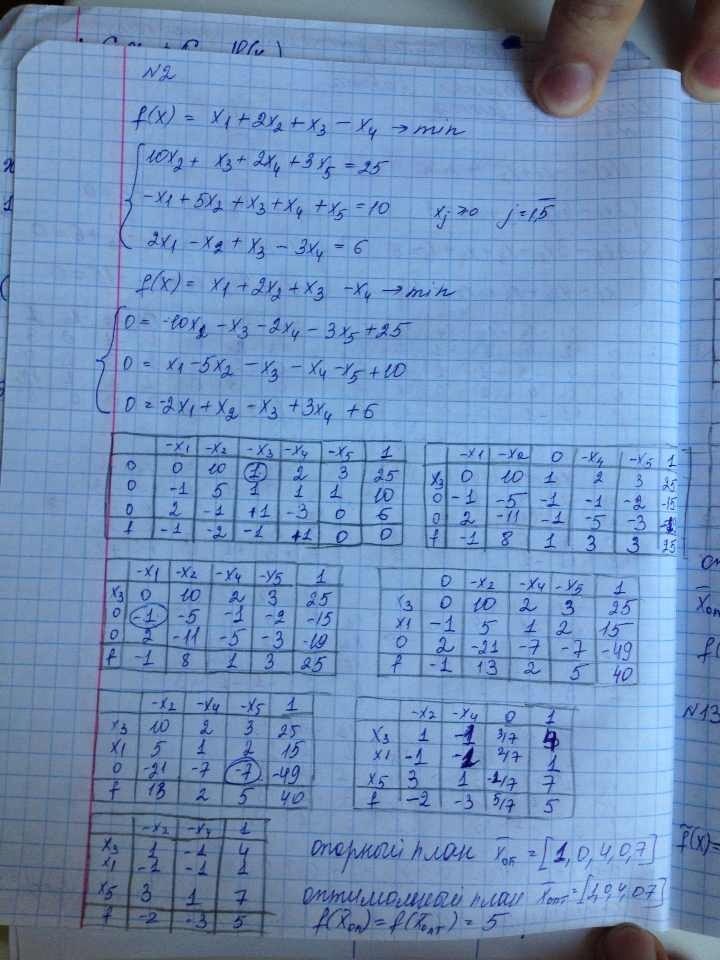 N2
f(x) = x1 + 2x2 + x3 − x4 → min
10x2 + x3 + 2x4 + 3x5 = 25
−x1 + 5x2 + x3 + x4 + x5 = 10 xj ≥ 0 j = 1,5
2x1 − x2 + x3 − 3x4 = 6
f(x) = x1 + 2x2 + x3 − x4 → min
0 = −10x2 − x3 − 2x4 − 3x5 + 25
0 = x1 − 5x2 − x3 − x4 − x5 + 10
0 = −2x1 + x2 − x3 + 3x4 + 6
−x1 −x2 −x3 −x4 −x5 1
0 0 10 1 2 3 25
0 −1 5 1 1 1 10
0 2 −1 +1 −3 0 6
f −1 −2 −1 +1 0 0
−x1 −x2 0 −x4 −x5 1
x3 0 10 1 2 3 25
0 −1 −5 −1 −1 −2 −15
0 2 −11 −1 −5 −3 −19
f −1 8 1 3 3 25
−x1 −x2 −x4 −x5 1
x3 0 10 2 3 25
0 −1 −5 −1 −2 −15
0 2 −11 −5 −3 −19
f −1 8 1 3 25
0 −x2 −x4 −x5 1
x3 0 10 2 3 25
x1 −1 5 1 2 15
0 2 −21 −7 −7 −49
f −1 13 2 5 40
−x2 −x4 −x5 1
x3 10 2 3 25
x1 5 1 2 15
0 −21 −7 −7 −49
f 13 2 5 40
−x2 −x4 0 1
x3 1 −1 3/7 4
x1 −1 −1 2/7 1
x5 3 1 −1/7 7
f −2 −3 5/7 5
−x2 −x4 1
x3 1 −1 4
x1 −1 −1 1
x5 3 1 7
f −2 −3 5
опорный план x̄оп = [1,0,4,0,7]
оптимальный план x̄опт = [1,0,4,0,7]
f(x̄оп) = f(x̄опт) = 5
N13
f̃(x)=